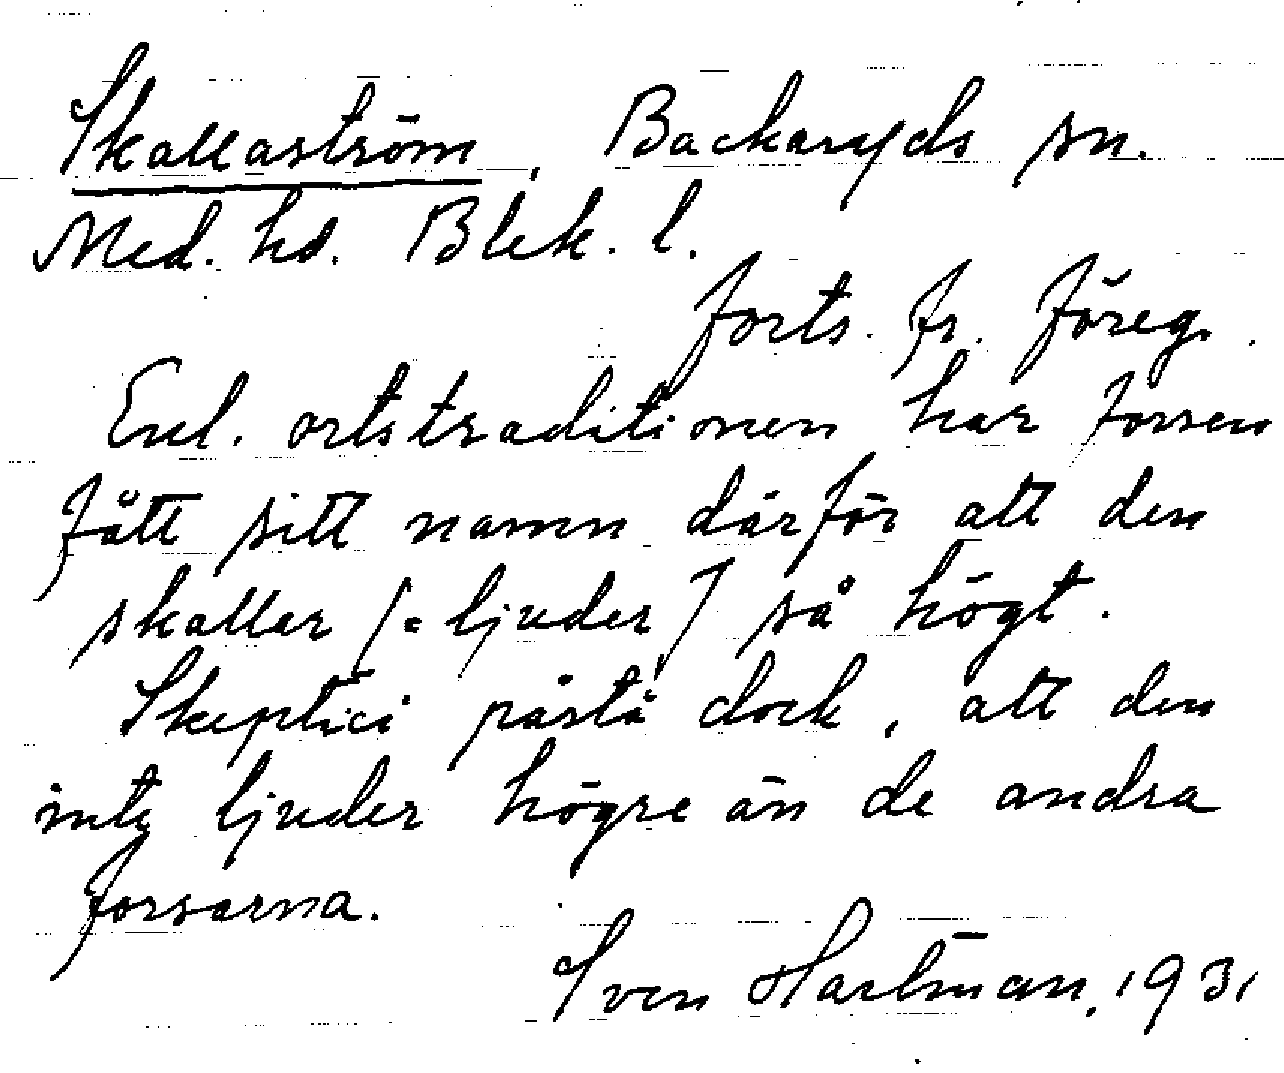 Skallaström, Backaryds sn.
Med. hd. Blek. l.
forts. fr. föreg.
Enl. ortstraditionen har forsen
fått sitt namn därför att den
skallar (= ljuder) så högt.
Skeptici påstå dock, att den
inte ljuder högre än de andra
forsarna.
Sven Hartman, 1931